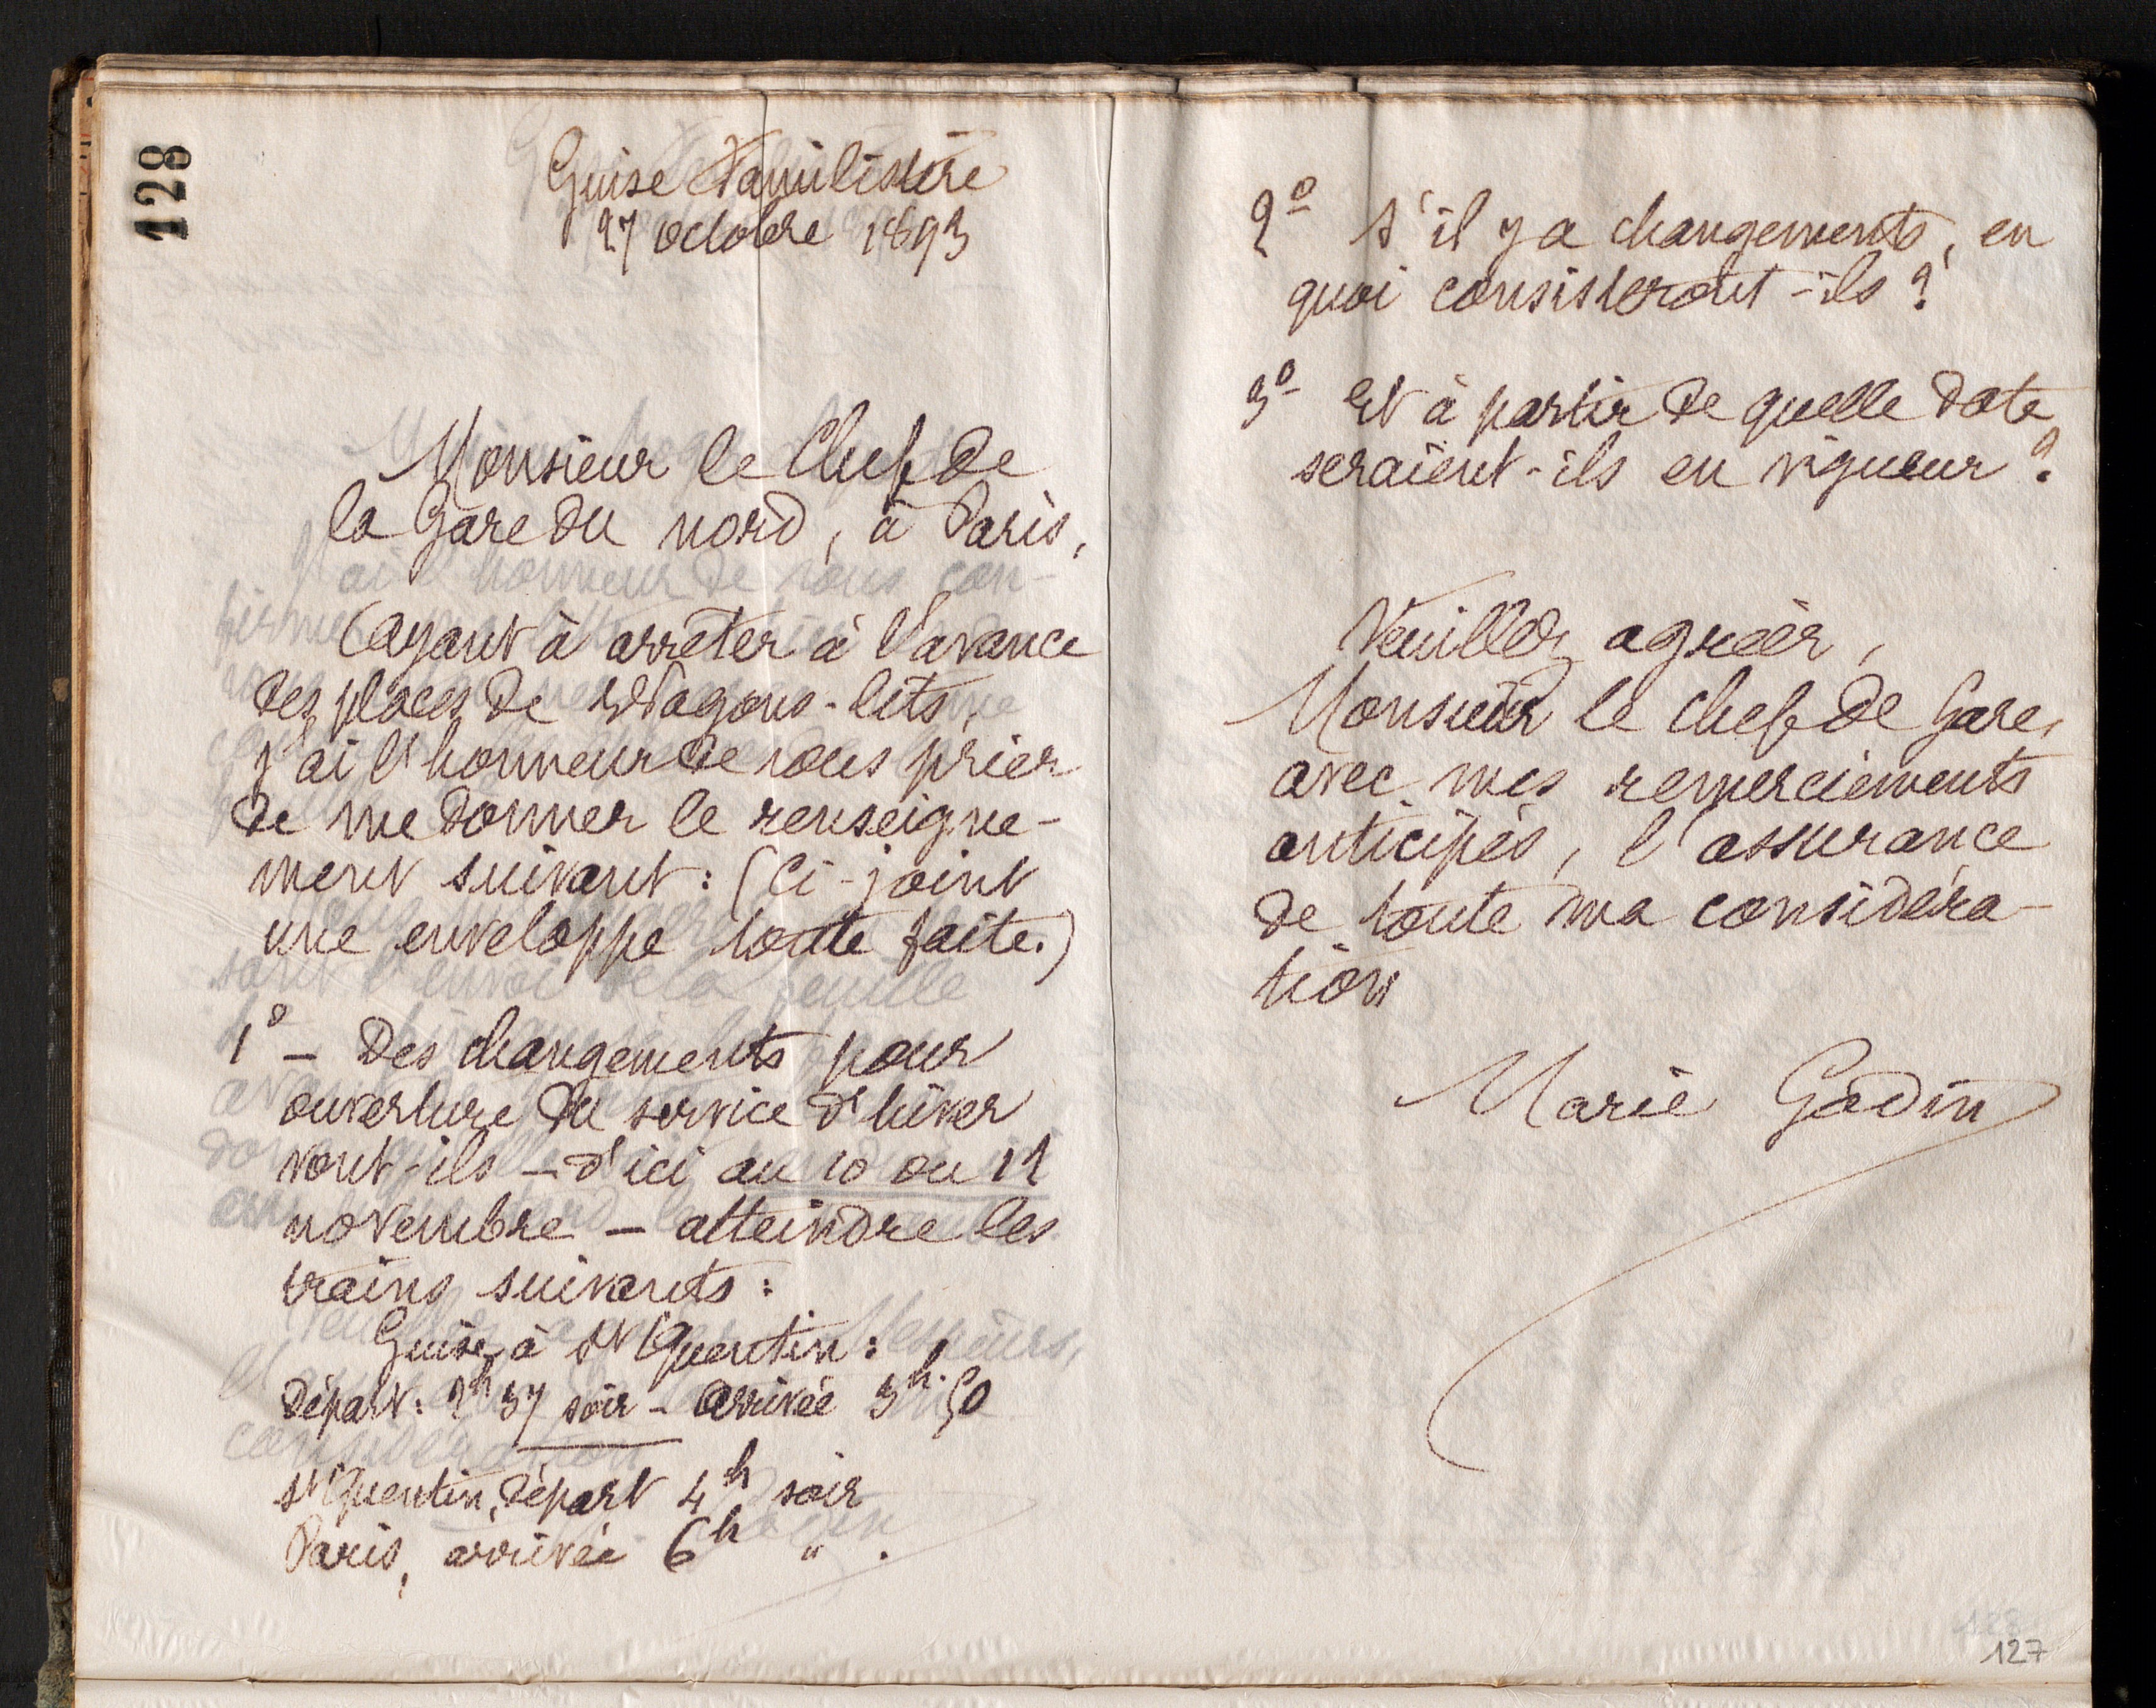 128
Guise Familistère
27 octobre 1893
Monsieur le Chef de
la Gare du nord, à Paris,
Ayant à arrêter à l'avance
des places de Wagons-lits,
j'ai l'honneur de vous prier
de me donner le renseigne-
ment suivant : (Ci-joint
une enveloppe toute faite.)
1º - Des changements pour
ouverture du service d'hiver
vont-ils - d'ici au 10 ou 11
novembre - atteindre les
trains suivants :
Guise à St Quentin :
Départ : 2h 37 soir - arrivée 3h.50
St Quentin, départ 4h soir
Paris, arrivée 6h " .
2º S'il y a changements, en
quoi consisteront-ils ?
3º Et à partir de quelle date
seraient-ils en vigueur ?
Veuillez agréer,
Monsieur le Chef de Gare,
avec mes remerciements
anticipés, l'assurance
de toute ma considéra-
tion
Marie Godin
127